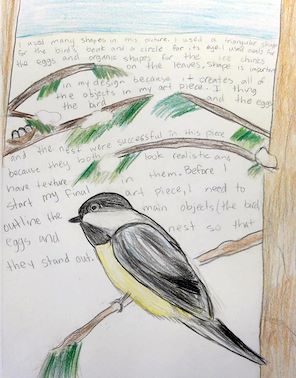 I used many shapes in this picture. I used a triangular shape
for the bird's beak and a circle for its eye. I used ovals for
the eggs and organic shapes for the ice chines
on the leaves, shape is important
in my design because it creates all of
the objects in my art piece. I thing
the bird and the eggs
and the nest were successful in this piece
because they both look realistic and
have texture in them. Before I
start my final art piece, I need to
outline the main objects (the bird,
eggs and nest so that
they stand out.